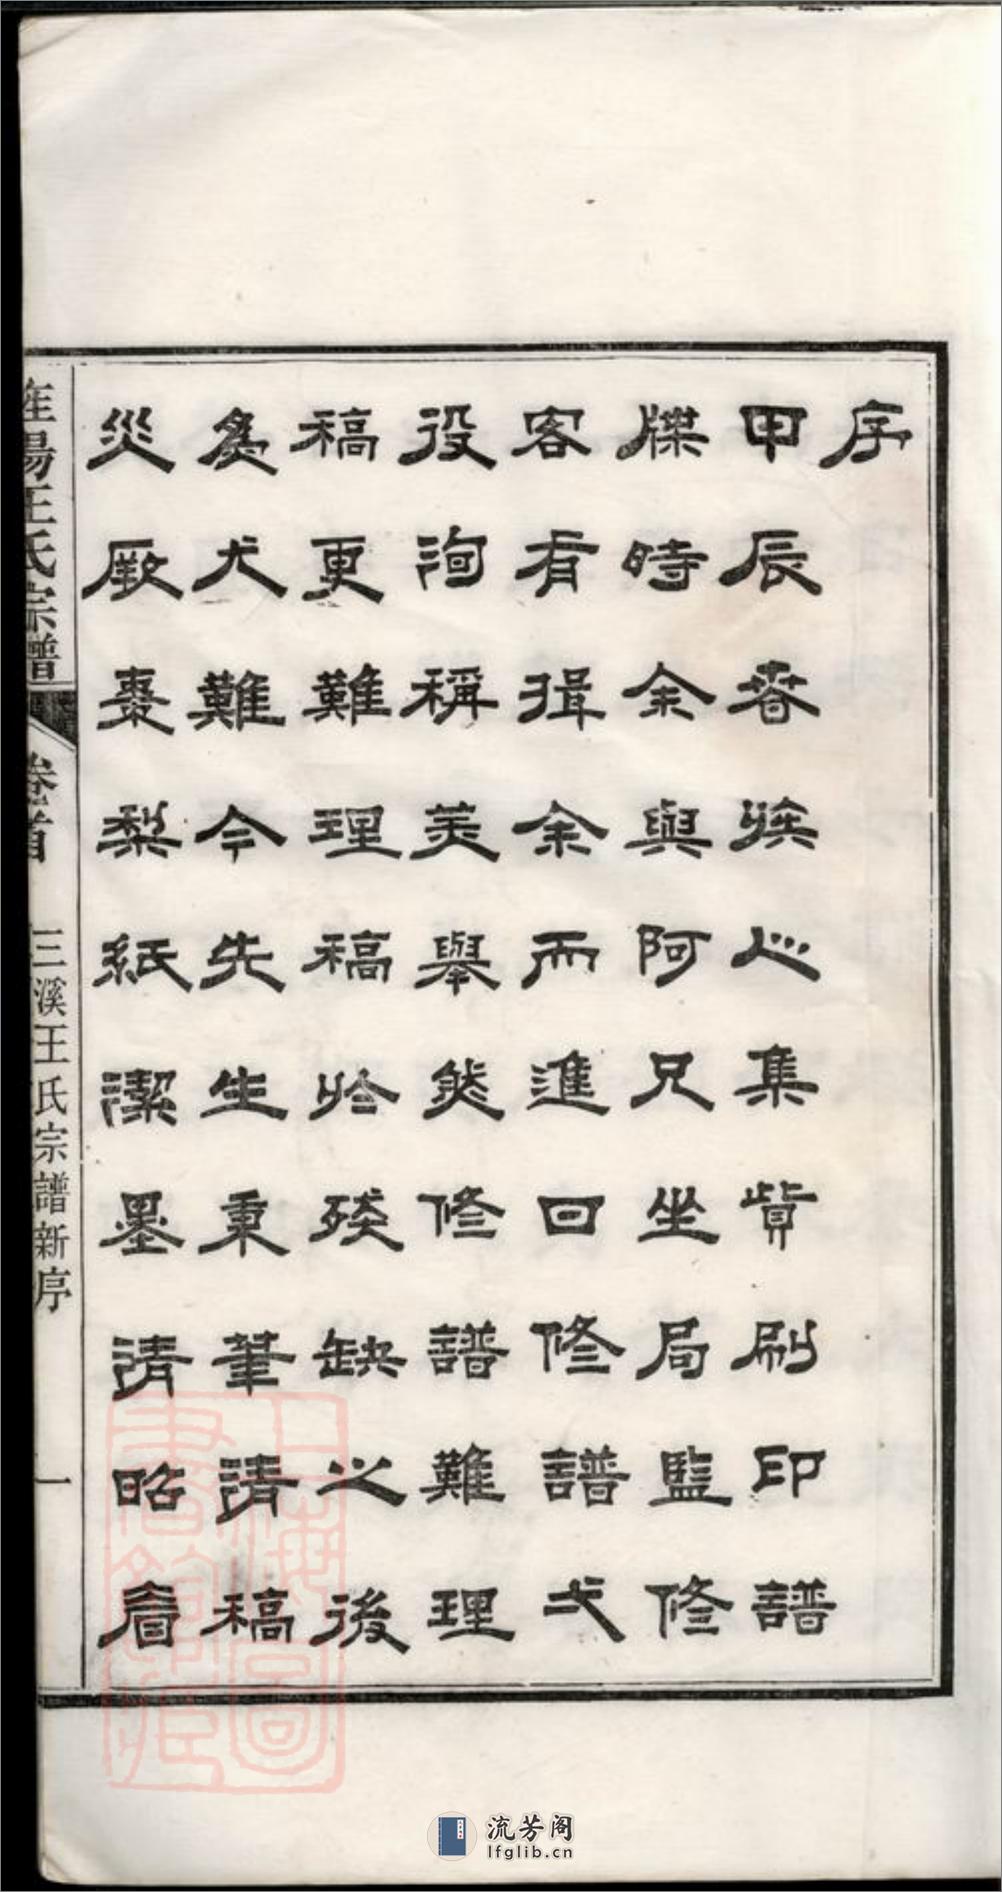 序
甲辰春族心集貲刷印譜
牒時余與阿兄坐局監修
客有揖余而進曰修譜弌
役洵稱美舉然修譜難理
稿更難理稿於殘缺之後
爲尤難今先生秉筆清稿
災厥棗梨紙潔墨清昭眉
旌陽王氏宗譜
卷首
三溪王氏宗譜新序
一
上海圖書館藏
流芳阁
lfglib.cn